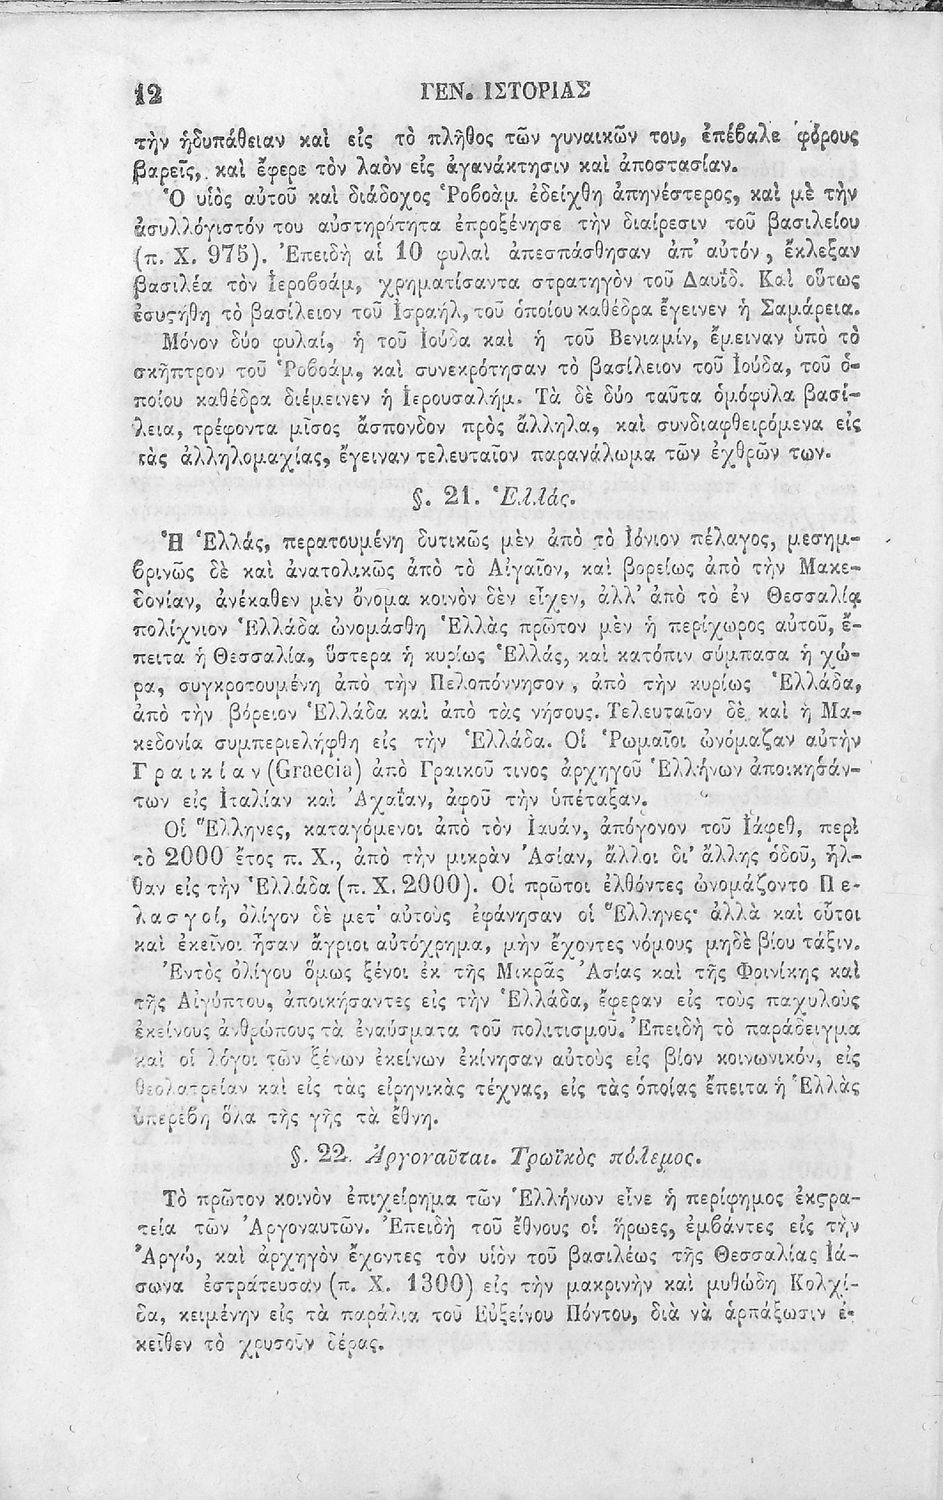 12 ΓΕΝ. ΙΣΤΟΡΙΑΣ
τὴν ἡδυπάθειαν καὶ εἰς τὸ πλῆθος τῶν γυναικῶν του, ἐπέβαλε φόρους
βαρεῖς, καὶ ἔφερε τὸν λαὸν εἰς ἀγανάκτησιν καὶ ἀποστασίαν.
Ὁ υἱὸς αὐτοῦ καὶ διάδοχος Ῥοβοὰμ ἐδείχθη ἀπηνέστερος, καὶ μὲ τὴν
ἀσυλλόγιστόν του αὐστηρότητα ἐπροξένησε τὴν διαίρεσιν τοῦ βασιλείου
(π. Χ. 975). Ἐπειδὴ αἱ 10 φυλαὶ ἀπεσπάσθησαν ἀπ᾽ αὐτόν, ἔκλεξαν
βασιλέα τὸν Ἱεροβοάμ, χρηματίσαντα στρατηγὸν τοῦ Δαυΐδ. Καὶ οὕτως
ἐσυϛήθη τὸ βασίλειον τοῦ Ἰσραήλ, τοῦ ὁποίου καθέδρα ἔγεινεν ἡ Σαμάρεια.
Μόνον δύο φυλαί, ἡ τοῦ Ἰούδα καὶ ἡ τοῦ Βενιαμίν, ἔμειναν ὑπὸ τὸ
σκῆπτρον τοῦ Ῥοβοάμ, καὶ συνεκρότησαν τὸ βασίλειον τοῦ Ἰούδα, τοῦ ὁ-
ποίου καθέδρα διέμεινεν ἡ Ἱερουσαλήμ. Τὰ δὲ δύο ταῦτα ὁμόφυλα βασί-
λεια, τρέφοντα μῖσος ἄσπονδον πρὸς ἄλληλα, καὶ συνδιαφθειρόμενα εἰς
τὰς ἀλληλομαχίας, ἔγειναν τελευταῖον παρανάλωμα τῶν ἐχθρῶν των.
§. 21. Ἑλλάς.
Ἡ Ἑλλάς, περατουμένη δυτικῶς μὲν ἀπὸ τὸ Ἰόνιον πέλαγος, μεσημ-
βρινῶς δὲ καὶ ἀνατολικῶς ἀπὸ τὸ Αἰγαῖον, καὶ βορείως ἀπὸ τὴν Μακε-
δονίαν, ἀνέκαθεν μὲν ὄνομα κοινὸν δὲν εἶχεν, ἀλλ᾽ ἀπὸ τὸ ἐν Θεσσαλίᾳ
πολίχνιον Ἑλλάδα ὠνομάσθη Ἑλλὰς πρῶτον μὲν ἡ περίχωρος αὐτοῦ, ἔ-
πειτα ἡ Θεσσαλία, ὕστερα ἡ κυρίως Ἑλλάς, καὶ κατόπιν σύμπασα ἡ χώ-
ρα, συγκροτουμένη ἀπὸ τὴν Πελοπόννησον, ἀπὸ τὴν κυρίως Ἑλλάδα,
ἀπὸ τὴν βόρειον Ἑλλάδα καὶ ἀπὸ τὰς νήσους. Τελευταῖον δὲ καὶ ἡ Μα-
κεδονία συμπεριελήφθη εἰς τὴν Ἑλλάδα. Οἱ Ῥωμαῖοι ὠνόμαζαν αὐτὴν
Γραικίαν (Graecia) ἀπὸ Γραικοῦ τινος ἀρχηγοῦ Ἑλλήνων ἀποικησάν-
των εἰς Ἰταλίαν καὶ Ἀχαΐαν, ἀφοῦ τὴν ὑπέταξαν.
Οἱ Ἕλληνες, καταγόμενοι ἀπὸ τὸν Ἰαυάν, ἀπόγονον τοῦ Ἰάφεθ, περὶ
τὸ 2000 ἔτος π. Χ., ἀπὸ τὴν μικρὰν Ἀσίαν, ἄλλοι δι᾽ ἄλλης ὁδοῦ, ἦλ-
θαν εἰς τὴν Ἑλλάδα (π. Χ. 2000). Οἱ πρῶτοι ἐλθόντες ὠνομάζοντο Πε-
λασγοί, ὀλίγον δὲ μετ᾽ αὐτοὺς ἐφάνησαν οἱ Ἕλληνες· ἀλλὰ καὶ οὗτοι
καὶ ἐκεῖνοι ἦσαν ἄγριοι αὐτόχρημα, μὴν ἔχοντες νόμους μηδὲ βίου τάξιν.
Ἐντὸς ὀλίγου ὅμως ξένοι ἐκ τῆς Μικρᾶς Ἀσίας καὶ τῆς Φοινίκης καὶ
τῆς Αἰγύπτου, ἀποικήσαντες εἰς τὴν Ἑλλάδα, ἔφεραν εἰς τοὺς παχυλοὺς
ἐκείνους ἀνθρώπους τὰ ἐναύσματα τοῦ πολιτισμοῦ. Ἐπειδὴ τὸ παράδειγμα
καὶ οἱ λόγοι τῶν ξένων ἐκείνων ἐκίνησαν αὐτοὺς εἰς βίον κοινωνικόν, εἰς
θεολατρείαν καὶ εἰς τὰς εἰρηνικὰς τέχνας, εἰς τὰς ὁποίας ἔπειτα ἡ Ἑλλὰς
ὑπερέβη ὅλα τῆς γῆς τὰ ἔθνη.
§. 22. Ἀργοναῦται. Τρωϊκὸς πόλεμος.
Τὸ πρῶτον κοινὸν ἐπιχείρημα τῶν Ἑλλήνων εἶνε ἡ περίφημος ἐκϛρα-
τεία τῶν Ἀργοναυτῶν. Ἐπειδὴ τοῦ ἔθνους οἱ ἥρωες, ἐμβάντες εἰς τὴν
Ἀργώ, καὶ ἀρχηγὸν ἔχοντες τὸν υἱὸν τοῦ βασιλέως τῆς Θεσσαλίας Ἰά-
σωνα ἐστράτευσαν (π. Χ. 1300) εἰς τὴν μακρινὴν καὶ μυθώδη Κολχί-
δα, κειμένην εἰς τὰ παράλια τοῦ Εὐξείνου Πόντου, διὰ νὰ ἁρπάξωσιν ἐ-
κεῖθεν τὸ χρυσοῦν δέρας.